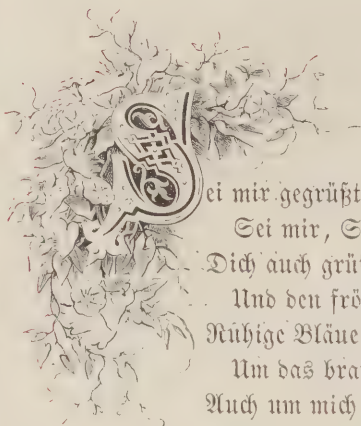 Sei mir gegrüßt
Sei mir, S
Dich auch grü
Und den frö
Ruhige Bläue
Um das bra
Auch um mich